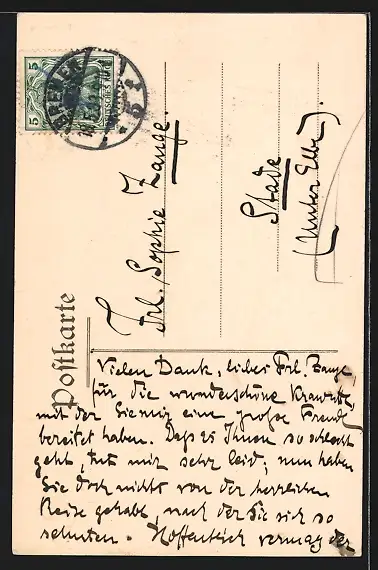 Postkarte
BREMEN
5
5
5
Frl. Sophie Zange.
Stade
(Unter Elbe).
Vielen Dank, liebes Frl. Zange,
für die wunderschöne Krawatte,
mit der Sie mir eine große Freude
bereitet haben. Daß es Ihnen so schlecht
geht, tut mir sehr leid; nun haben
Sie doch nichts von der herrlichen
Reise gehabt, nach der Sie sich so
sehnten. Hoffentlich vermag der